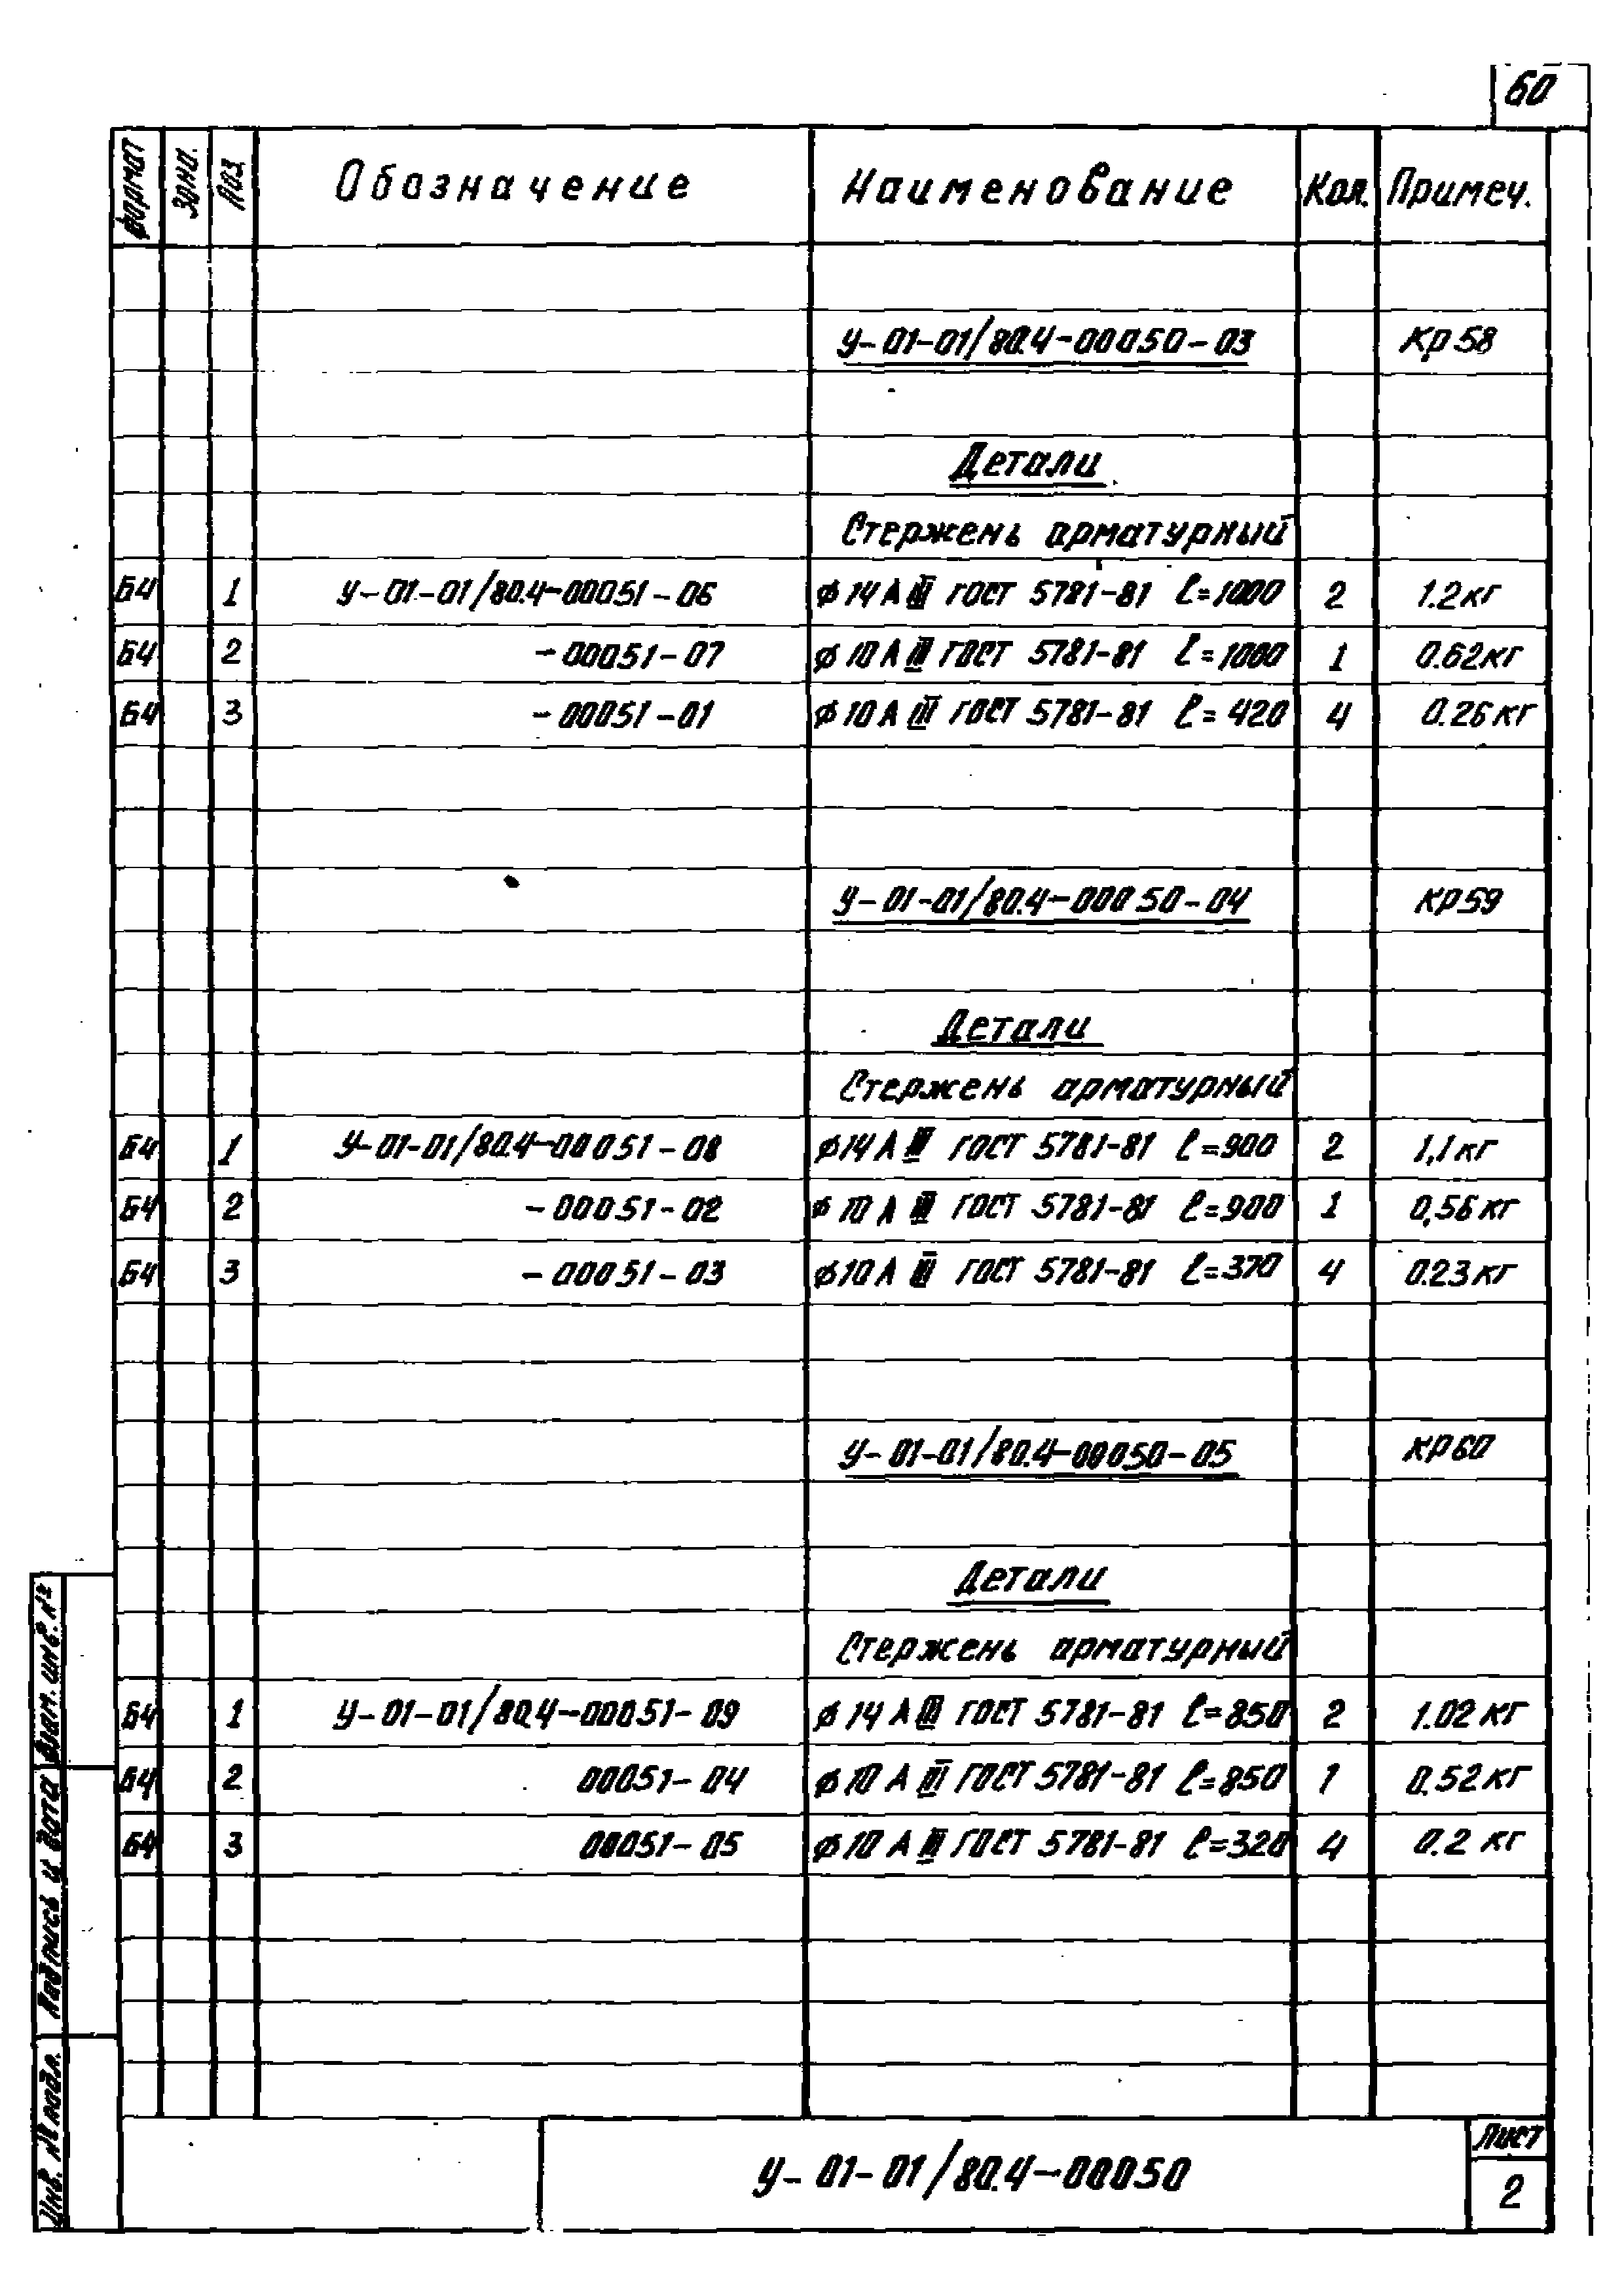 60
Формат Зона. Поз. Обозначение Наименование Кол. Примеч.
У-01-01/80.4-00050-03 КР58
Детали
Стержень арматурный
БЧ 1 У-01-01/80.4-00051-06 ø14АIII ГОСТ 5781-81 ℓ=1000 2 1.2кг
БЧ 2 -00051-07 ø10АIII ГОСТ 5781-81 ℓ=1000 1 0.62кг
БЧ 3 -00051-01 ø10АIII ГОСТ 5781-81 ℓ=420 4 0.26кг
У-01-01/80.4-00050-04 КР59
Детали
Стержень арматурный
БЧ 1 У-01-01/80.4-00051-08 ø14АIII ГОСТ 5781-81 ℓ=900 2 1,1кг
БЧ 2 -00051-02 ø10АIII ГОСТ 5781-81 ℓ=900 1 0,56кг
БЧ 3 -00051-03 ø10АIII ГОСТ 5781-81 ℓ=370 4 0.23кг
У-01-01/80.4-00050-05 КР60
Детали
Стержень арматурный
БЧ 1 У-01-01/80.4-00051-09 ø14АIII ГОСТ 5781-81 ℓ=850 2 1.02кг
БЧ 2 00051-04 ø10АIII ГОСТ 5781-81 ℓ=850 1 0.52кг
БЧ 3 00051-05 ø10АIII ГОСТ 5781-81 ℓ=320 4 0.2 кг
Взам. инв. №
Подпись и дата
Инв. № подл.
У-01-01/80.4-00050
Лист
2